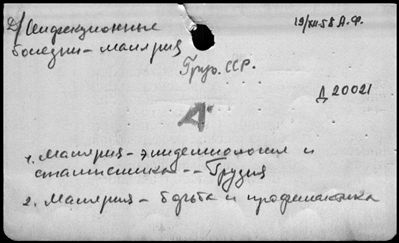 Д/Инфекционные
болезни - малярия
19/XII 58 А.Ф.
Груз. ССР.
Д 20021
А
1. Малярия - эпидемиология и
статистика -- Грузия
2. Малярия - борьба и профилактика